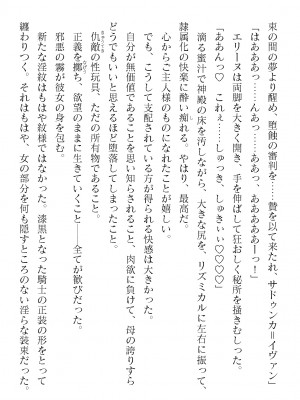 束の間の夢より醒め、堕蝕の審判を……贄を以て来たれ、サドゥンカ＝イヴァン」
「はあああっ……んあっ……ああっ、あああああーっ！」
エリーヌは両脚を大きく開き、手を伸ばして狂おしく秘所を掻きむしった。
「ああんっ♡　これぇ……しゅっき、しゅきぃぃ♡♡♡」
滴る蜜汁で神殿の床を汚しながら、大きな尻を、リズミカルに左右に振って、
隷属化の快楽に酔い痴れる。やはり、最高だ。
心からご主人様のものになれたことが嬉しい。
でも、こうして支配されている方が得られる快感は大きかった。
自分が無価値であることを思い知らされること、肉欲に負けて、母の誇りすら
どうでもいいと思えるほど堕落してしまったこと。
仇敵の性玩具、ただの所有物であること。
正義を擲ち、欲望のままに生きていくこと――全てが歓びだった。
邪悪の霧が彼女の身を包む。
新たな淫紋はもはや紋様ではなかった。漆黒となった騎士の正装の形をとって
纏わりつく。それはもはや、女の部分を何も隠すところのない淫らな装束だった。